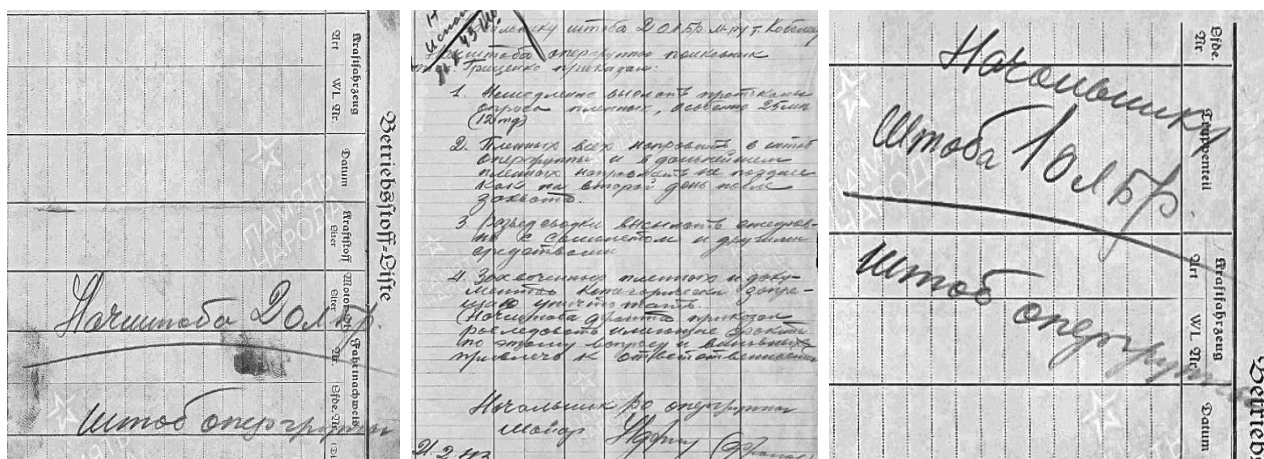 Betriebsstoff-Liste
Kraftfahrzeug
Art
WL Nr.
Datum
Kraftstoff
Liter
Motoröl
Liter
Fahrtnachweis
Nr.
Начштаба 2 ОЛБР.
Штаб опергруппы
ПАМЯТЬ
НАРОДА
Начальнику штаба 2 ОЛБР м-ру т. Кобец
Начштаба опергруппы полковник
т. Грищенко приказал:
1. Немедленно выслать протоколы
опроса пленных, особенно 25мп
(12тд)
2. Пленных всех направить в штаб
опергруппы и в дальнейшем
пленных направлять не позднее
как на второй день после
захвата.
3. Разведсводки высылать ежеднев-
но с самолетом и другими
средствами
4. Захваченных пленных и доку-
ментов категорически запре-
щаю уничтожать.
(Начштаба фронта приказал
расследовать имеющие факты
по этому вопросу и виновных
привлечь к ответственности
Начальник РО опергруппы
майор
21.2.43
Начальнику
Штаба 1 ОЛБР.
Штаб опергруппы
Lfde.
Nr.
Truppenteil
Kraftfahrzeug
Art
WL Nr.
Datum
ПАМЯТЬ
НАРОДА